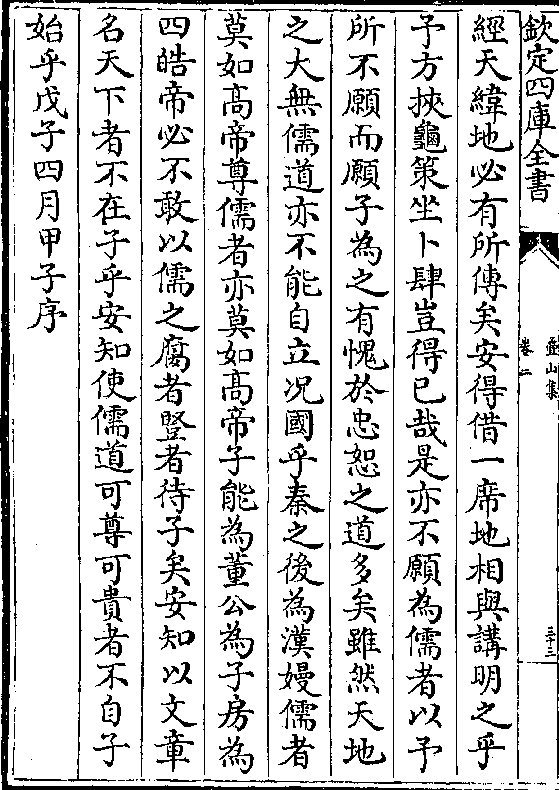 欽定四庫全書
疊山集
卷二
二十三
經天緯地必有所傳矣安得借一席地相與講明之乎
予方挾龜策坐卜肆豈得已哉是亦不願為儒者以予
所不願而願子為之有愧於忠恕之道多矣雖然天地
之大無儒道亦不能自立况國乎秦之後為漢嫚儒者
莫如髙帝尊儒者亦莫如髙帝子能為董公為子房為
四皓帝必不敢以儒之腐者豎者待子矣安知以文章
名天下者不在子乎安知使儒道可尊可貴者不自子
始乎戊子四月甲子序